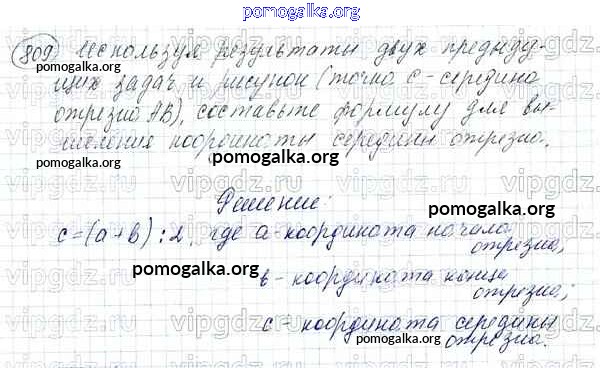 pomogalka.org
809) Используя результаты двух предыду-
pomogalka.org pomogalka.org
щих задач и рисунок (точка С - середина
отрезка АВ), составьте формулу для вы-
числения координаты середины отрезка.
pomogalka.org
Решение:
pomogalka.org
c=(a+b):2, где a-координата начала
отрезка,
pomogalka.org
b- координата конца
отрезка;
c- координата середины
pomogalka.org отрезка.
vipgdz.ru